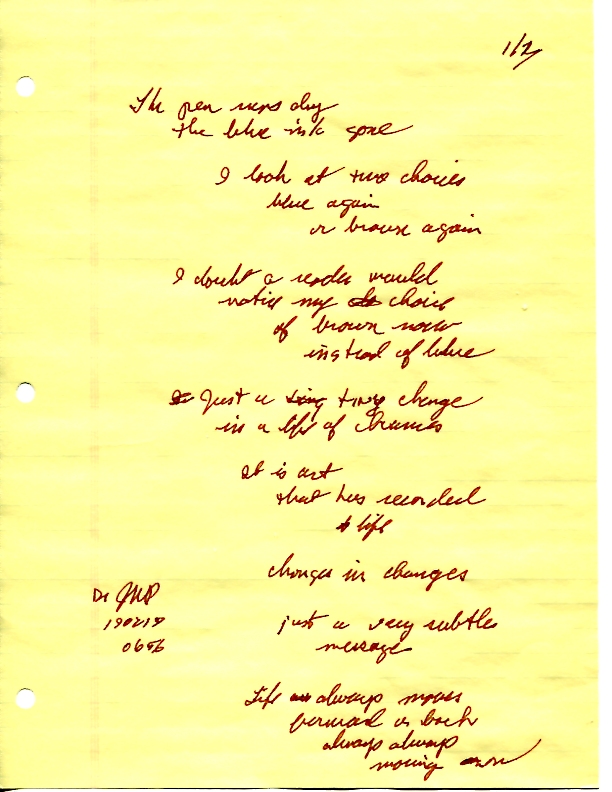 1/2
The pen runs dry
the blue ink gone
I look at two choices
blue again
or brown again
I doubt a reader would
notice my choice
of brown now
instead of blue
Just a tiny change
in a life of chances
It is art
that has recorded
life
changes in changes
Dr JMP
190219
0656
just a very subtle
message
Life always moves
forward or back
always always
moving